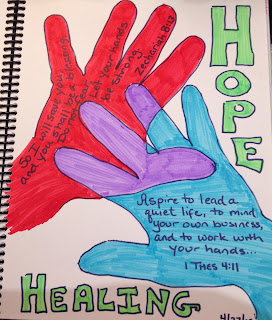 So I will save you,
and you shall be a blessing.
Do not fear,
Let your hands
be strong
Zechariah 8:13
HOPE
Aspire to lead a
quiet life, to mind
your own business,
and to work with
your hands...
1 Thes 4:11
HEALING